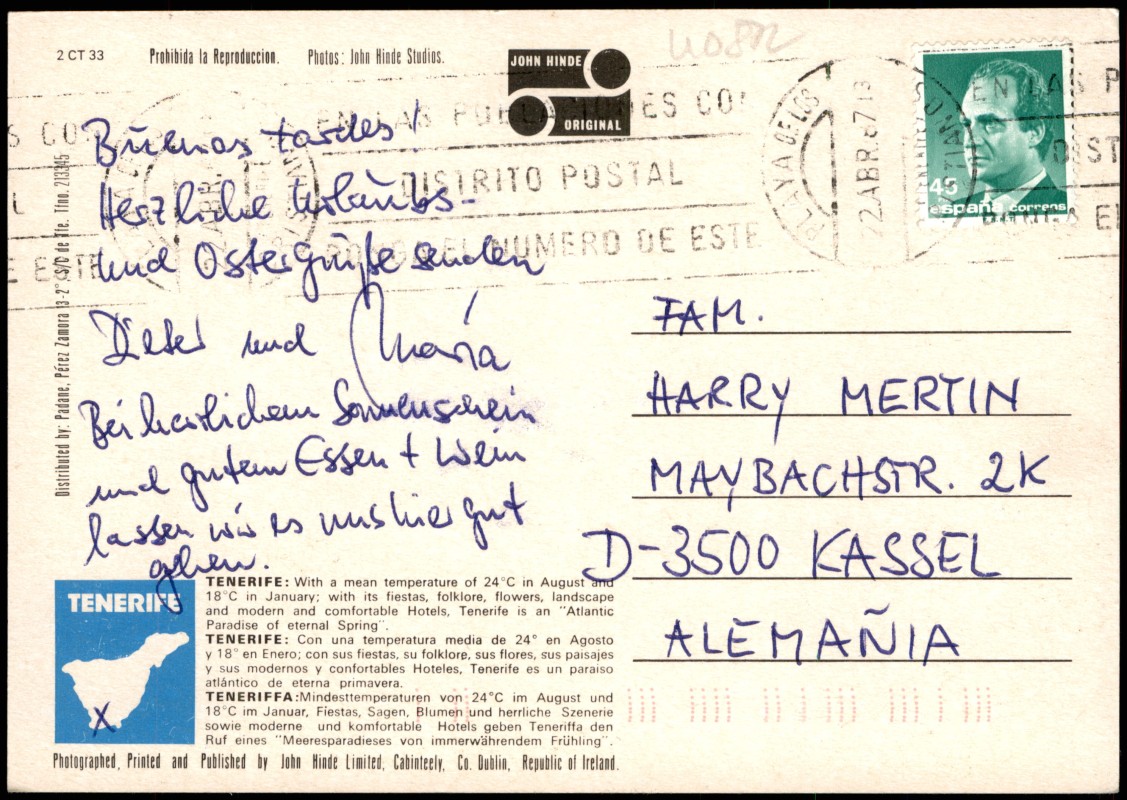 2 CT 33 Prohibida la Reproduccion. Photos: John Hinde Studios.
JOHN HINDE
ORIGINAL
Distributed by: Padane, Pérez Zamora 13-2° S/C de Tfe. Tfno. 213345
EN LAS POBLACIONES CO
DISTRITO POSTAL
PONGA EL NUMERO DE ESTE
PLAYA DE LOS
22 ABR. 87 13
45
españa correos
Buenas tardes!
Herzliche Urlaubs-
und Ostergrüße senden
Dieter und Maria
Bei herrlichem Sonnenschein
und gutem Essen + Wein
lassen wir es uns hier gut
gehen.
FAM.
HARRY MERTIN
MAYBACHSTR. 2K
D-3500 KASSEL
ALEMAÑIA
TENERIFE
X
TENERIFE: With a mean temperature of 24°C in August and
18°C in January; with its fiestas, folklore, flowers, landscape
and modern and comfortable Hotels, Tenerife is an "Atlantic
Paradise of eternal Spring".
TENERIFE: Con una temperatura media de 24° en Agosto
y 18° en Enero; con sus fiestas, su folklore, sus flores, sus paisajes
y sus modernos y confortables Hoteles, Tenerife es un paraiso
atlántico de eterna primavera.
TENERIFFA: Mindesttemperaturen von 24°C im August und
18°C im Januar, Fiestas, Sagen, Blumen und herrliche Szenerie
sowie moderne und komfortable Hotels geben Teneriffa den
Ruf eines "Meeresparadieses von immerwährendem Frühling".
Photographed, Printed and Published by John Hinde Limited, Cabinteely, Co. Dublin, Republic of Ireland.